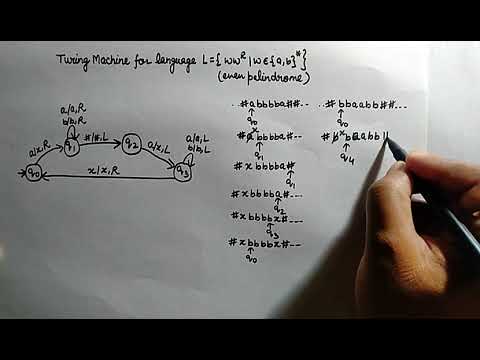 Turing Machine for language L={ww^R | w ∈ {a,b}*}
(even palindrome)
a/a,R
b/b,R
a/x,R
q1
#/#,L
q2
a/x,L
a/a,L
b/b,L
q0
x/x,R
q3
..#abbbba##--
↑
q0
#a^xbbbba#--
↑
q1
#xbbbba#
↑
q1
#xbbbba#--
↑
q2
#xbbbbx#--
↑
q3
#xbbbbx#--
↑
q0
..#bbaabb##---
↑
q0
#b^xbaabb
↑
q4